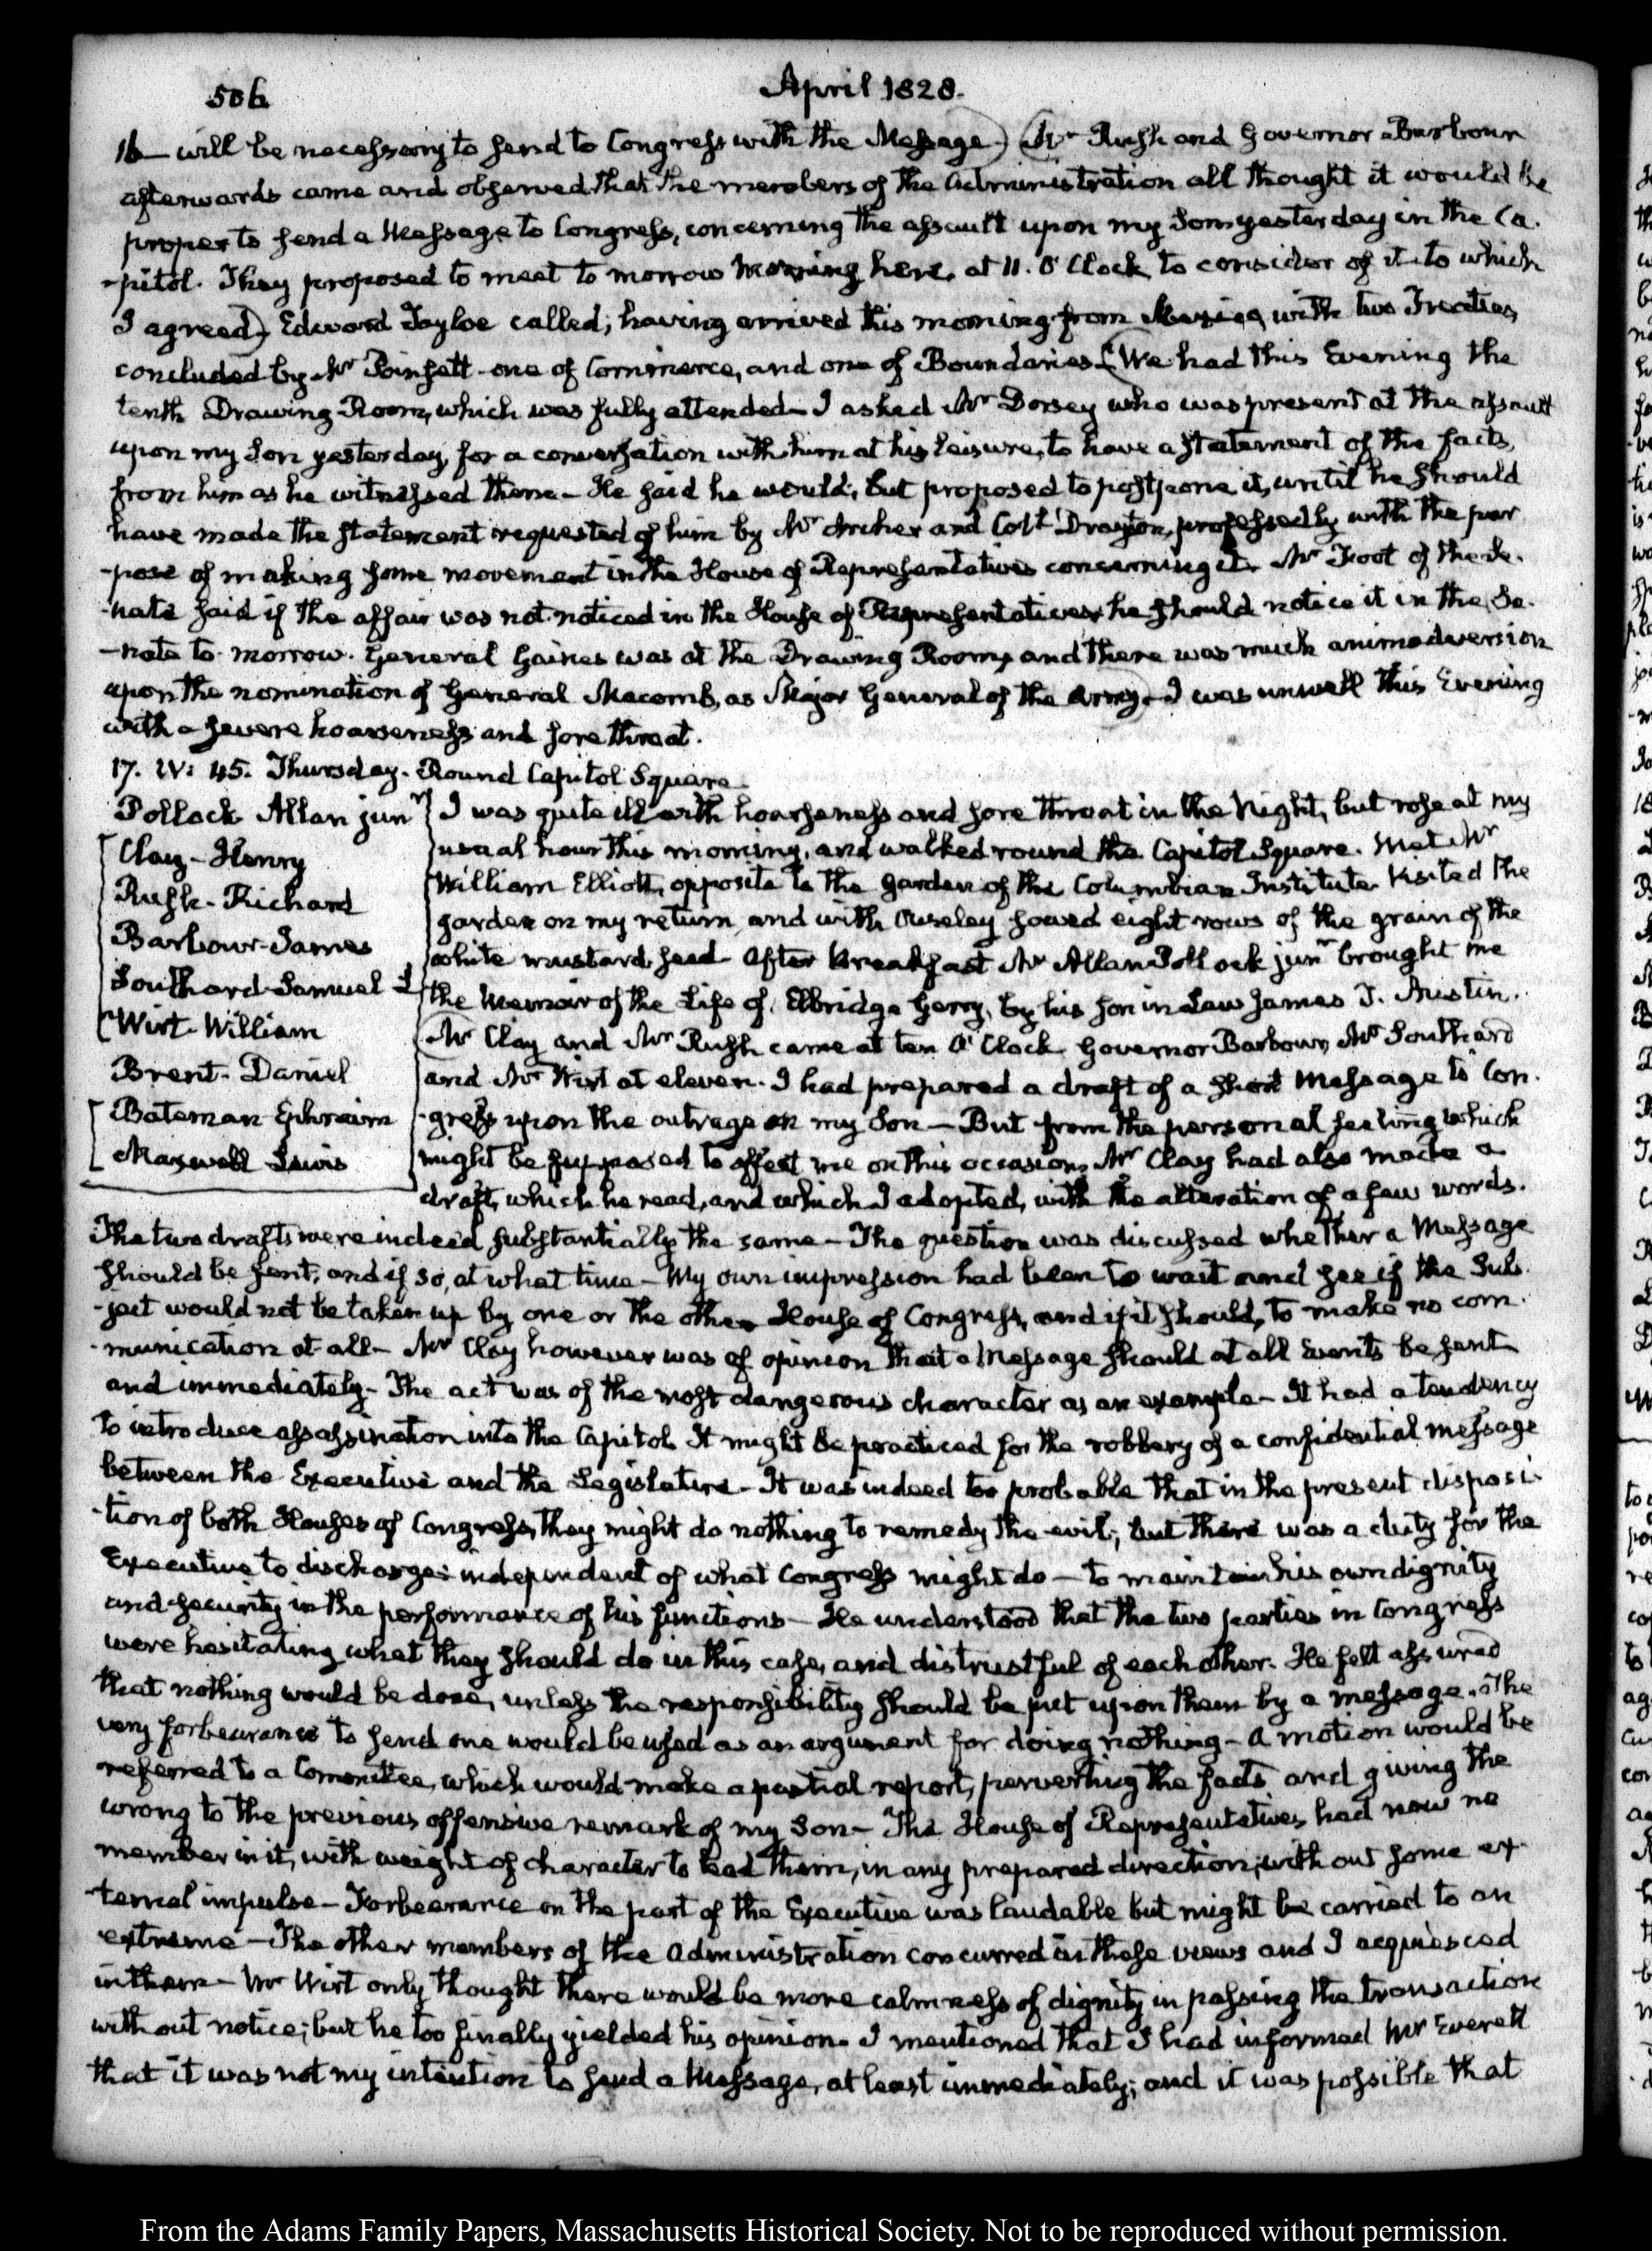 506
April 1828.
16— will be necessary to send to Congress with the Message) (Mr Rush and Governor Barbour
afterwards came and observed that the members of the Administration all thought it would be
proper to send a Message to Congress, concerning the assault upon my Son yesterday in the Ca-
-pitol. They proposed to meet to morrow morning here, at 11. O'Clock to consider of it: to which
I agreed) Edward Tayloe called; having arrived this morning from Mexico, with two Treaties,
concluded by Mr Poinsett—one of Commerce, and one of Boundaries—(We had this Evening the
tenth Drawing Room, which was fully attended—I asked Mr Dorsey who was present at the assault
upon my Son yesterday, for a conversation with him at his leisure, to have a statement of the facts,
from him as he witnessed them—He said he would, but proposed to postpone it, until he should
have made the statement requested of him by Mr Archer and Coll Drayton, professedly with the pur-
-pose of making some movement in the House of Representatives concerning it. Mr Foot of the Se-
-nate said if the affair was not noticed in the House of Representatives he should notice it in the Se-
-nate to morrow. General Gaines was at the Drawing Room, and there was much animadversion
upon the nomination of General Macomb, as Major General of the Army.—) I was unwell this Evening
with a severe hoarseness and sore throat.
17. IV: 45. Thursday. Round Capitol Square.
Pollock Allan junr
Clay—Henry
Rush—Richard
Barbour—James
Southard—Samuel L
Wirt—William
Brent—Daniel
Bateman Ephraim
Maxwell Lewis
I was quite ill with hoarseness and sore throat in the Night, but rose at my
usual hour this morning, and walked round the Capitol Square. Met Mr
William Elliott, opposite to the garden of the Columbian Institute. Visited the
garden on my return, and with Ouseley sowed eight rows of the grain of the
white mustard seed. After breakfast Mr Allan Pollock junr brought me
the Memoir of the Life of Elbridge Gerry, by his son in Law James T. Austin.
(Mr Clay and Mr Rush came at ten O'Clock Governor Barbour, Mr Southard
and Mr Wirt at eleven. I had prepared a draft of a short Message to Con-
-gress upon the outrage on my Son—But from the personal feeling which
might be supposed to affect me on this occasion, Mr Clay had also made a
draft, which he read, and which I adopted, with the alteration of a few words.
The two drafts were indeed substantially the same—The question was discussed whether a Message
should be sent, and if so, at what time—My own impression had been to wait and see if the Sub-
-ject would not be taken up by one or the other House of Congress, and if it should, to make no com-
-munication at all—Mr Clay however was of opinion that a Message should at all events be sent
and immediately—The act was of the most dangerous character as an example—It had a tendency
to introduce assassination into the Capitol. It might be practiced for the robbery of a confidential message
between the Executive and the Legislature—It was indeed too probable that in the present disposi-
-tion of both Houses of Congress, they might do nothing to remedy the evil; but there was a duty for the
Executive to discharge: independent of what Congress might do—to maintain his own dignity
and security in the performance of his functions—He understood that the two parties in Congress
were hesitating what they should do in this case, and distrustful of each other. He felt assured
that nothing would be done, unless the responsibility should be put upon them by a message. The
very forbearance to send one would be used as an argument for doing nothing—A motion would be
referred to a Committee, which would make a partial report, perverting the facts and giving the
wrong to the previous offensive remark of my Son—The House of Representatives had now no
member in it, with weight of character to lead them, in any prepared direction; without some ex-
-ternal impulse—Forbearance on the part of the Executive was laudable but might be carried to an
extreme—The other members of the Administration concurred in these views and I acquiesced
in them—Mr Wirt only thought there would be more calmness of dignity in passing the transaction
without notice; but he too finally yielded his opinion. I mentioned that I had informed Mr Everett
that it was not my intention to send a Message, at least immediately; and it was possible that
From the Adams Family Papers, Massachusetts Historical Society. Not to be reproduced without permission.